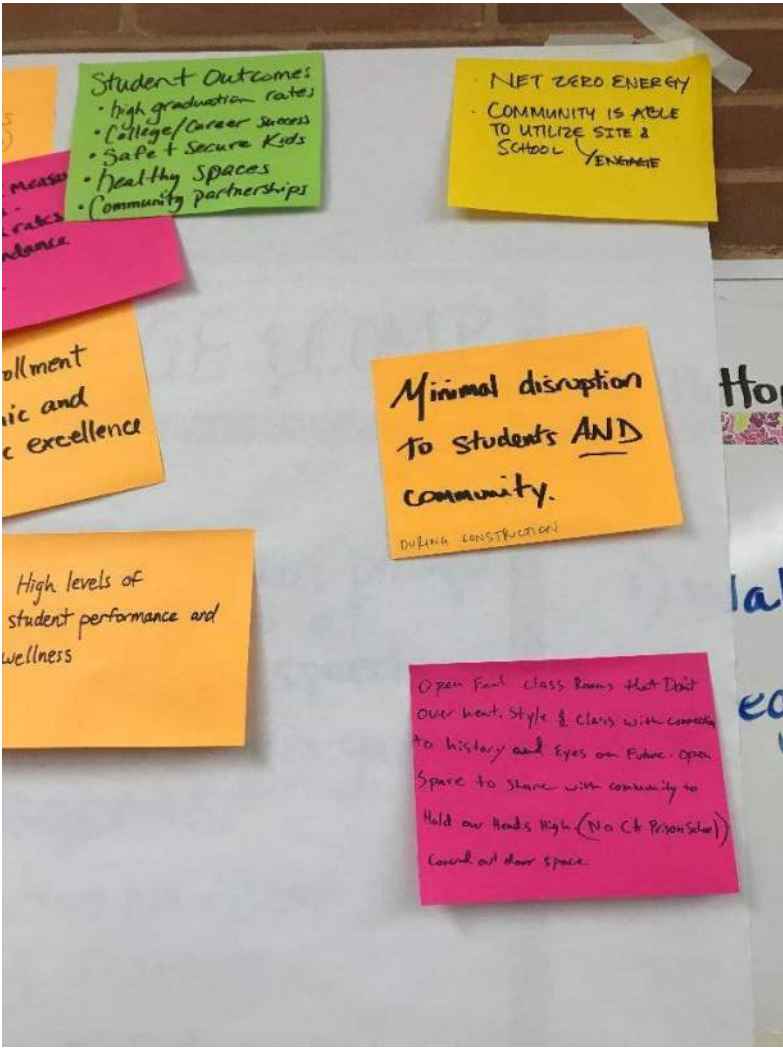 Student Outcomes
• high graduation rates
• College/Career Success
• Safe + Secure Kids
• healthy spaces
• Community partnerships
· NET ZERO ENERGY
· COMMUNITY IS ABLE
TO UTILIZE SITE &
SCHOOL ENGAGE
measu
rates
ndance
ollment
nic and
c excellence
Minimal disruption
to students AND
community.
DURING CONSTRUCTION
High levels of
student performance and
wellness
Open Feel class Rooms that Don't
over heat. Style & Class with connection
to history and Eyes on Future. open
Space to Share with community to
Hold our Heads High. (No Prison School)
out door space.
Hop